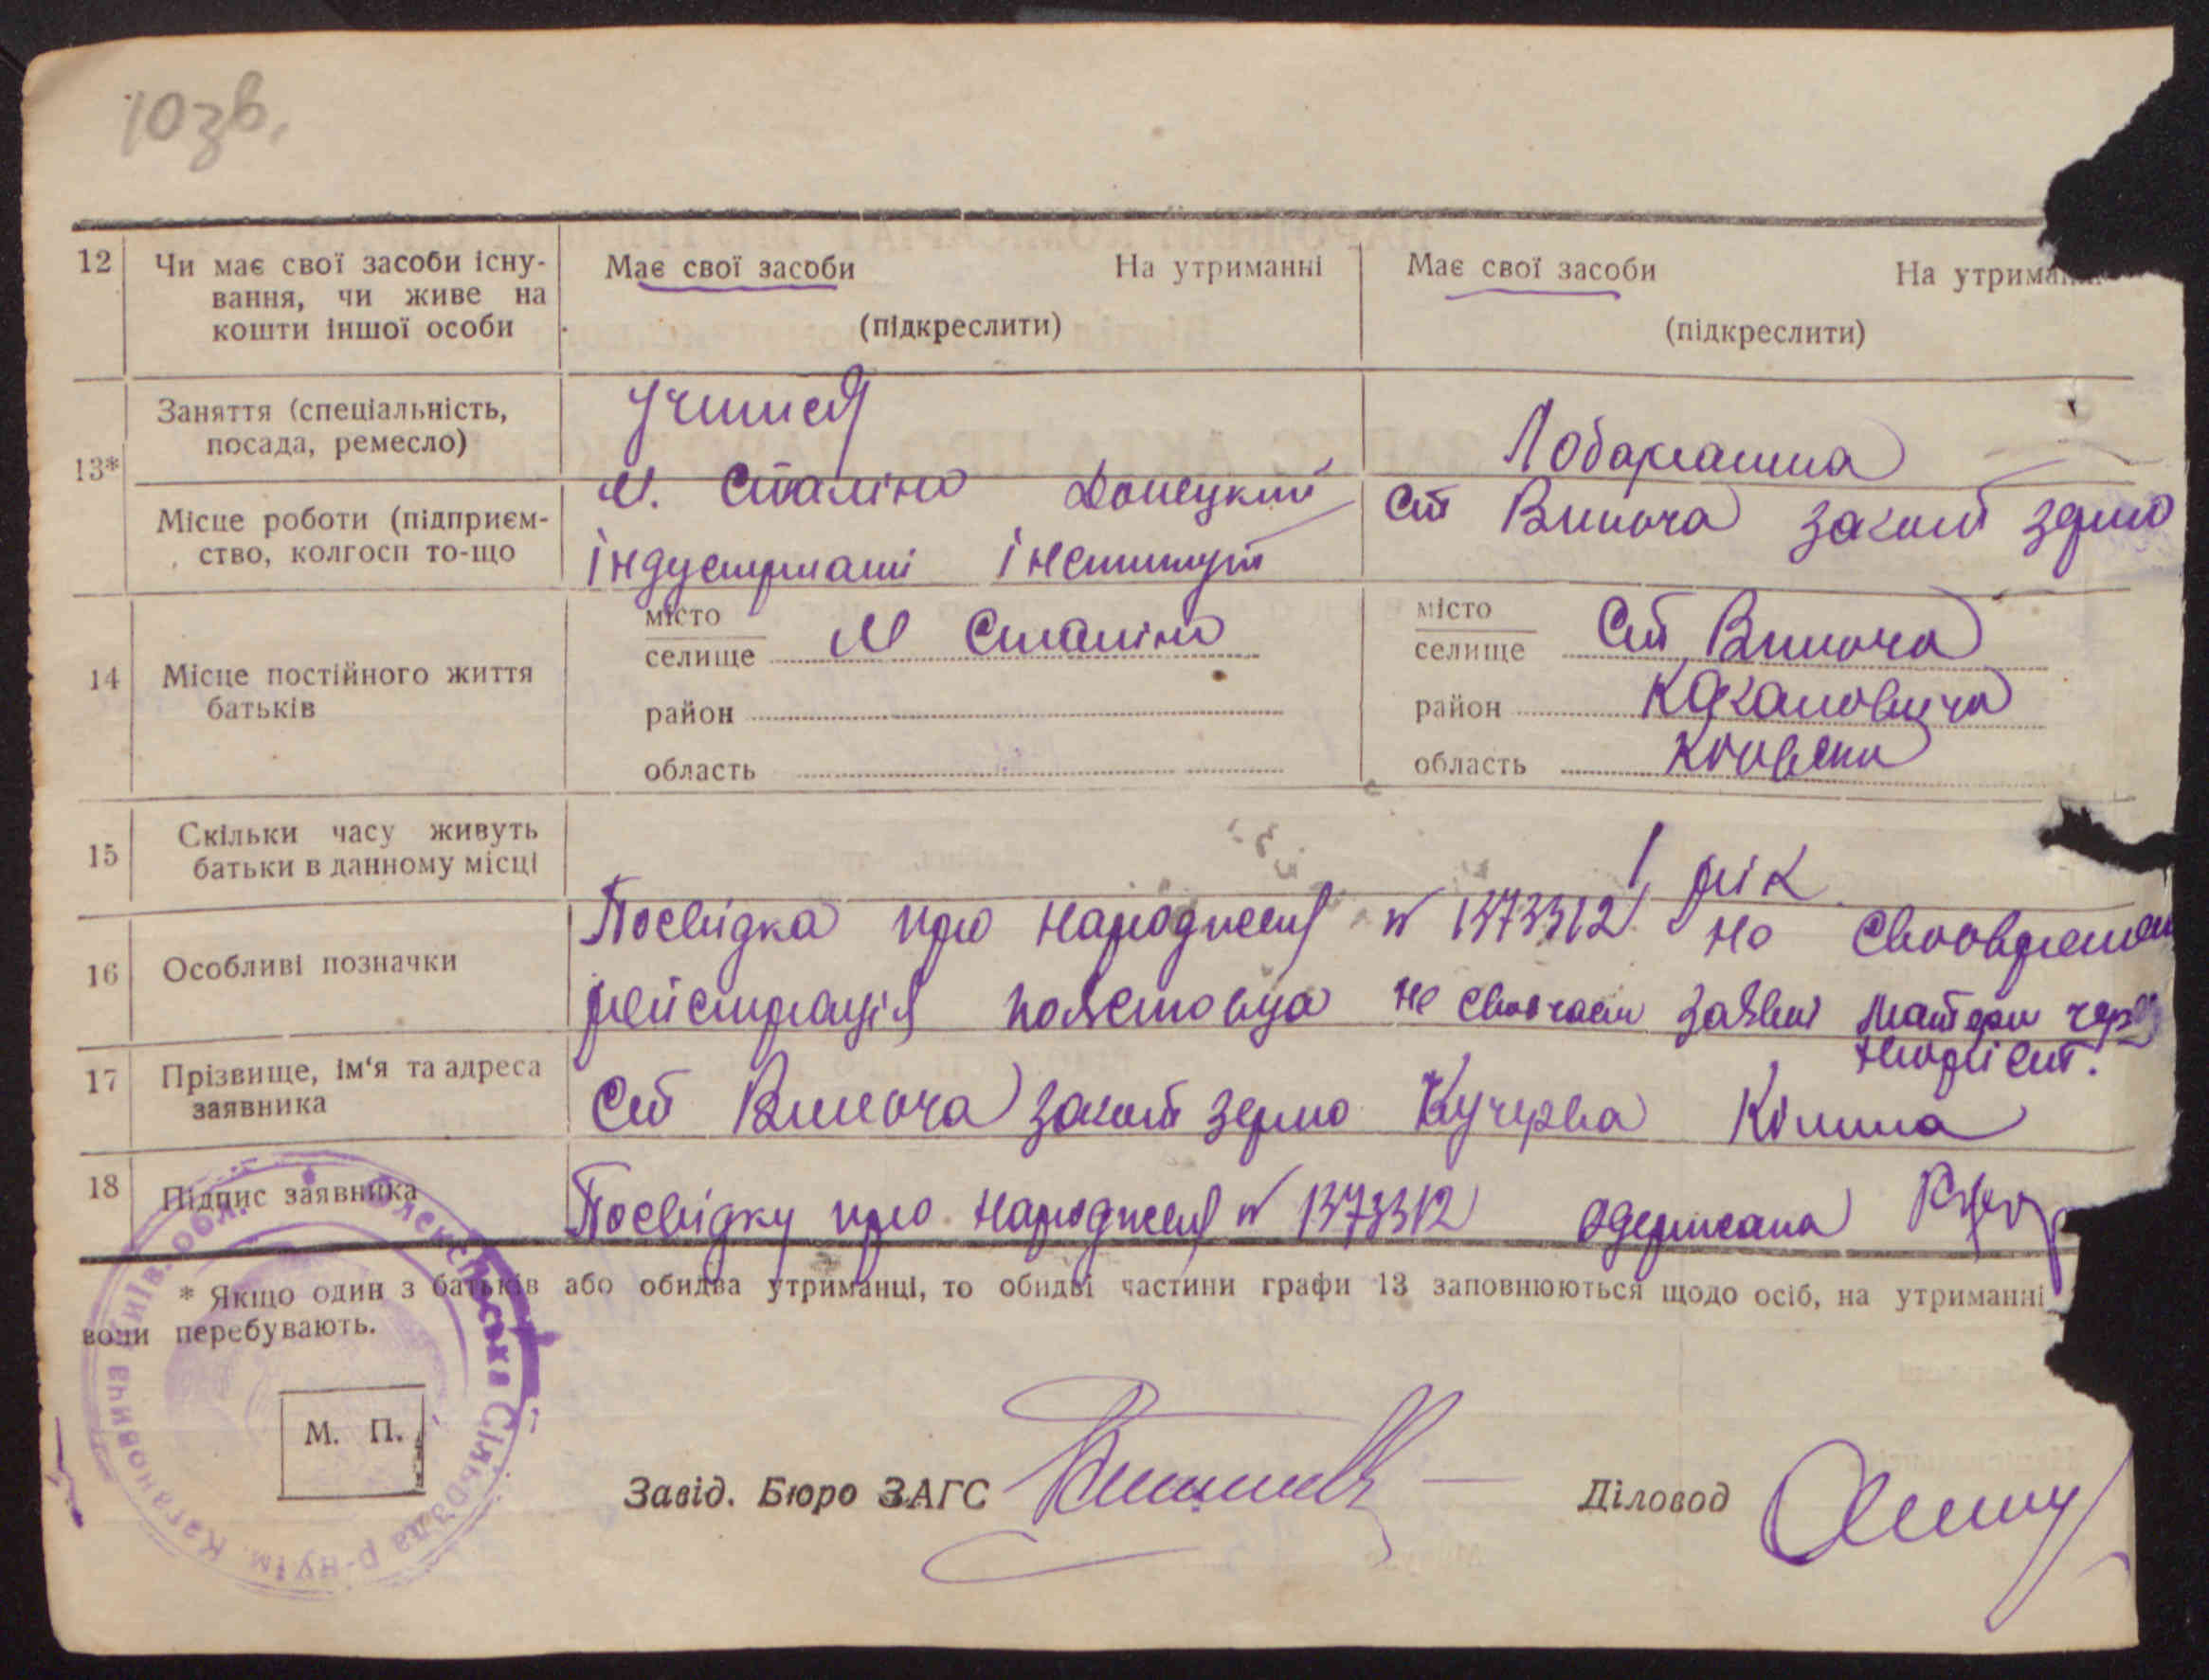 10зв.
12 Чи має свої засоби існу-
вання, чи живе на
кошти іншої особи
Має свої засоби На утриманні
(підкреслити)
Має свої засоби На утриман
(підкреслити)
13*
Заняття (спеціальність,
посада, ремесло)
Учится
Лобарантша
Місце роботи (підприєм-
ство, колгосп то-що
м. Сталіно Донецький
індустриалні інститут
Ст Вилоча загот зерно
14 Місце постійного життя
батьків
місто
селище М Сталіно
район
область
місто
селище Ст Вилоча
район Кагановича
область Київська
15 Скільки часу живуть
батьки в данному місці
1 рік
16 Особливі позначки
Посвідка про народження № 1373312. Не
рейстрація не заявки матери
17 Прізвище, ім'я та адреса
заявника
Ст Вилоча загот зерно
18 Підпис заявника
Посвідку про народження № 1373312 одержала
* Якщо один з батьків або обидва утриманці, то обидві частини графи 13 заповнюються щодо осіб, на утриманні
вони перебувають.
М. П.
Олексіївська Сільрада р-ну ім. Кагановича Київ. обл.
Завід. Бюро ЗАГС
Діловод